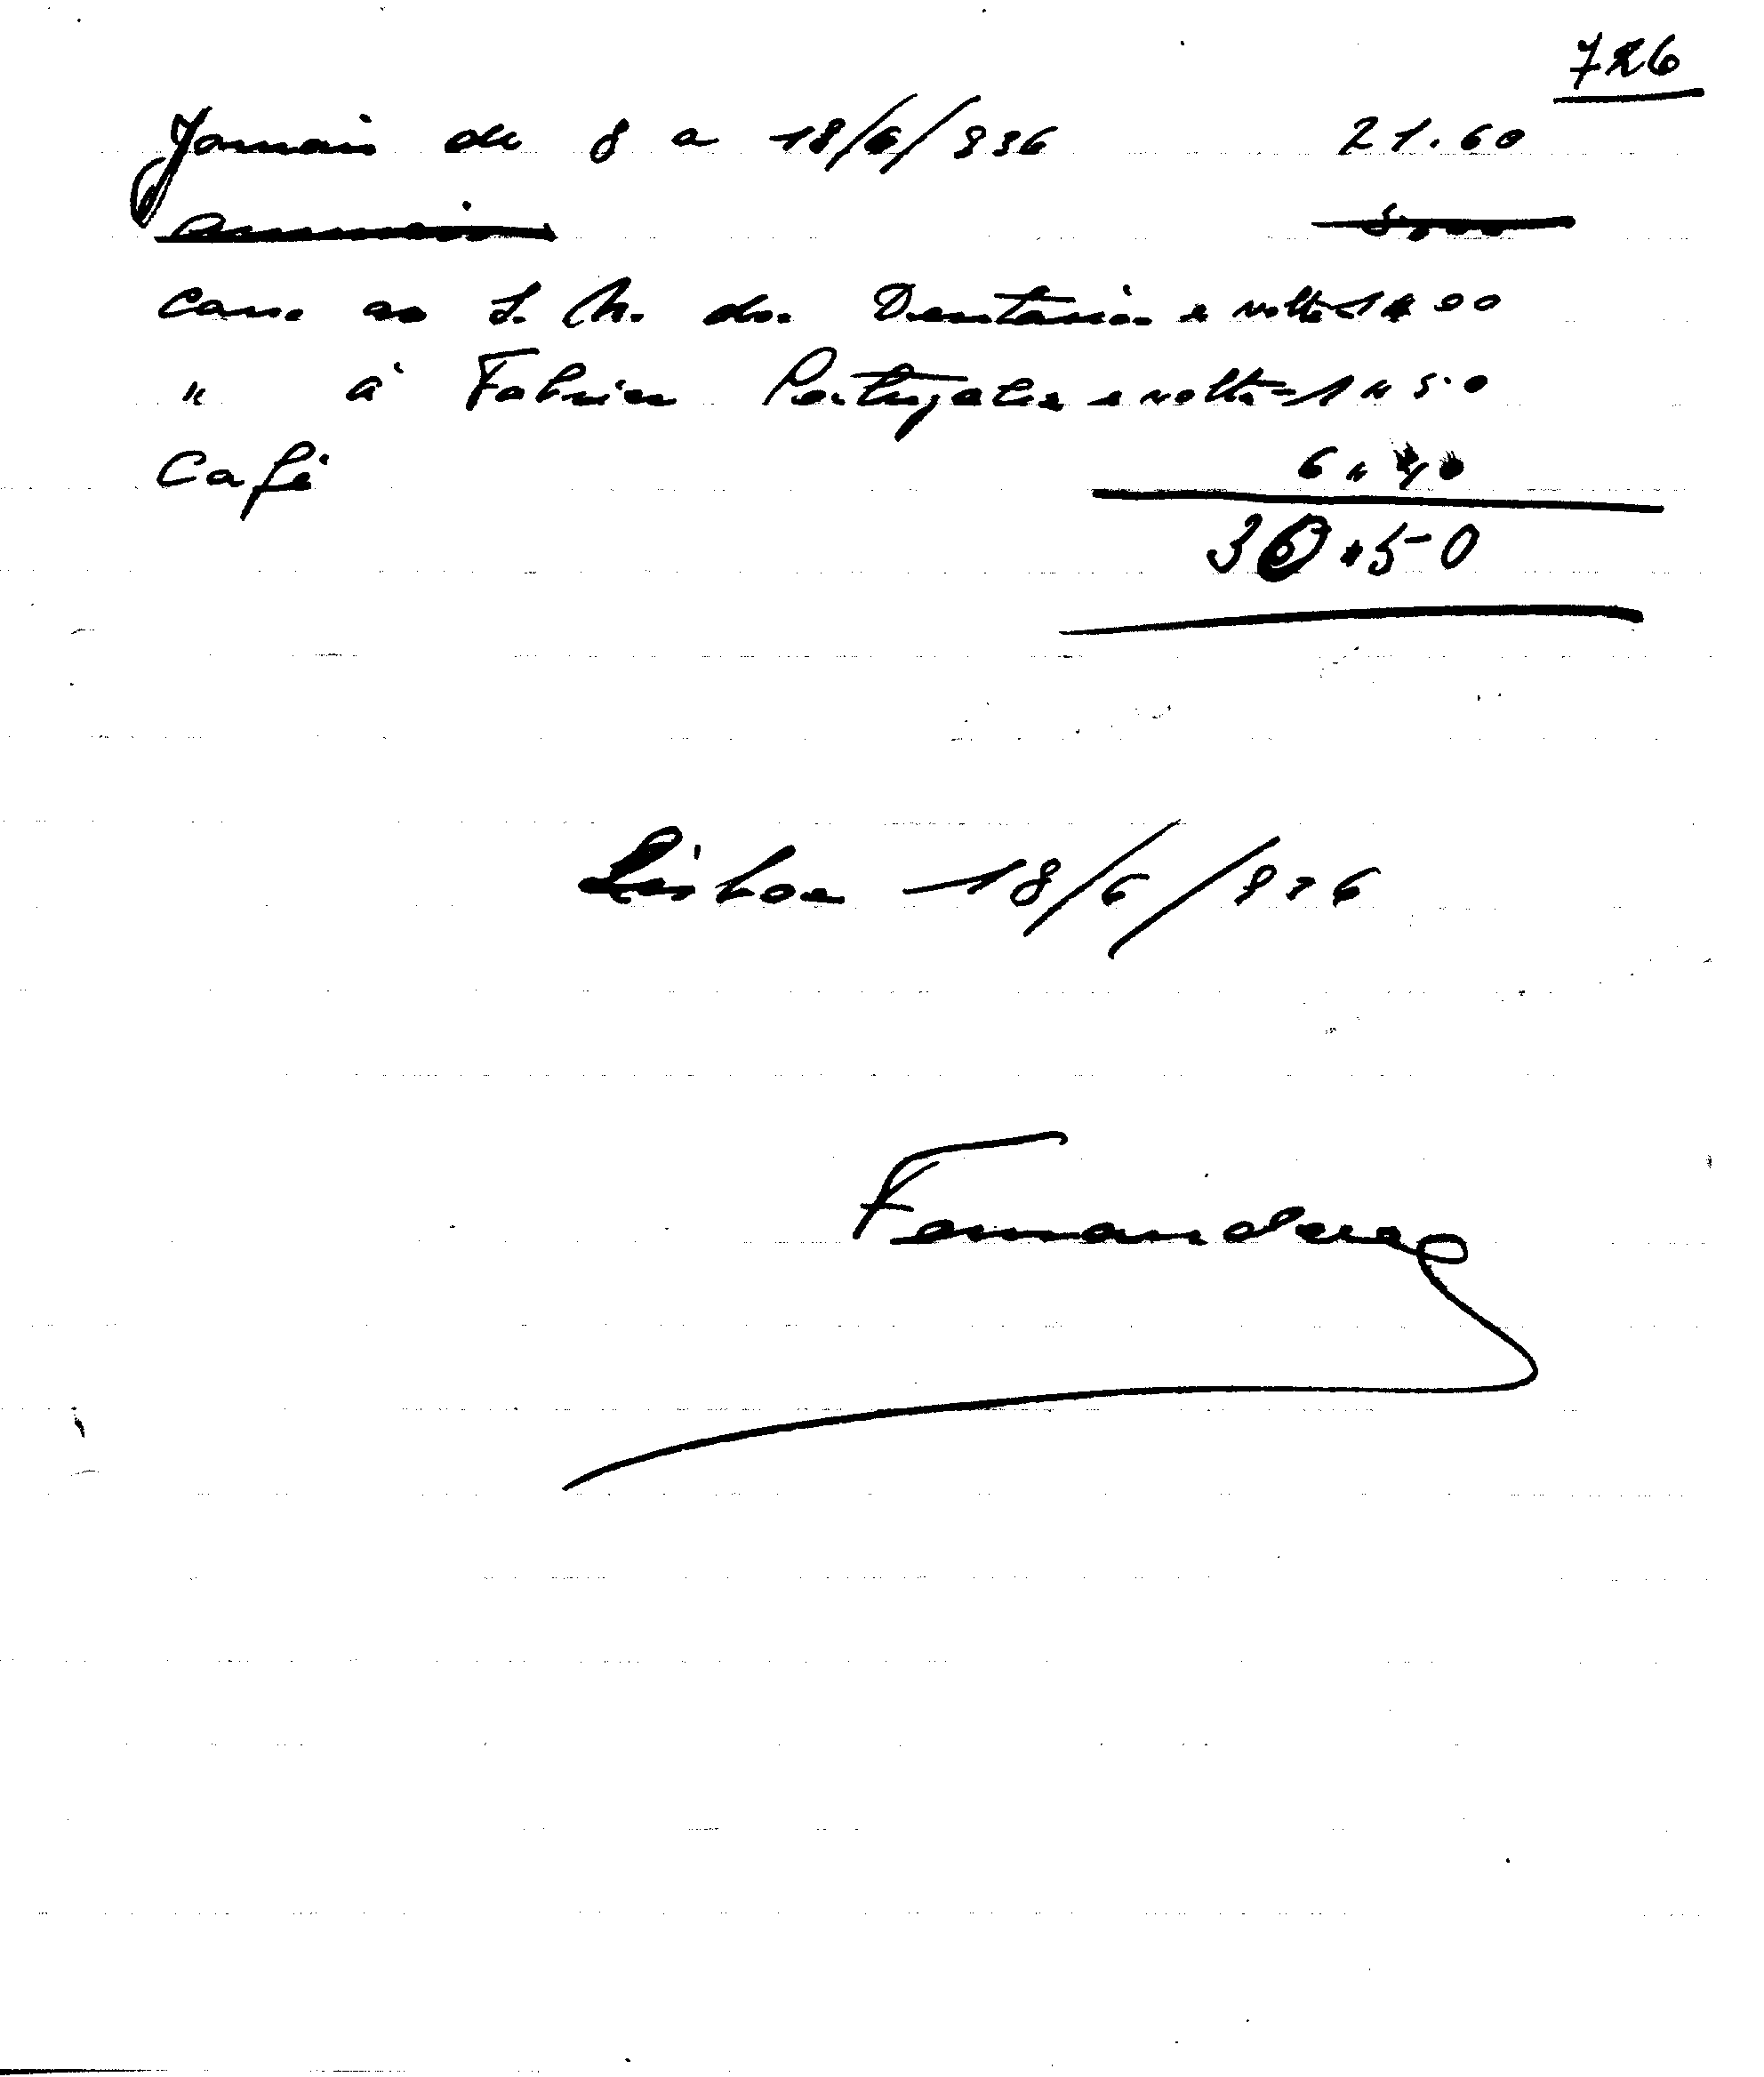 726
Jornais de 8 a 18/6/936 21.60
Anuncio 5,00
Carro ao S. N. dos Dentarios e volta - 1"00
" á Fabrica Portugalia e volta - 1"50
Café 6"40
30"50
Lisboa 18/6/936
Fernandes